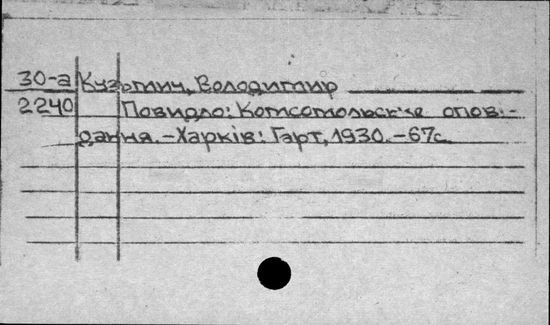 30-а Кузьмич, Володимир
2240 Повидло: Комсомольське опові-
дання. – Харків: Гарт, 1930. – 67с.